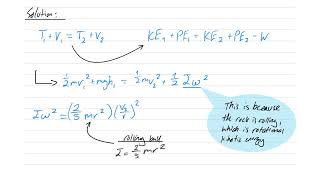 Solution:
T₁ + V₁ = T₂ + V₂
KE₁ + PE₁ = KE₂ + PE₂ - W
½mv₁² + mgh₁ = ½mv₂² + ½ Iω²
Iω² = (2/5 mr²)(v₂/r)²
rolling ball
I = 2/5 mr²
This is because
the rock is rolling,
which is rotational
kinetic energy